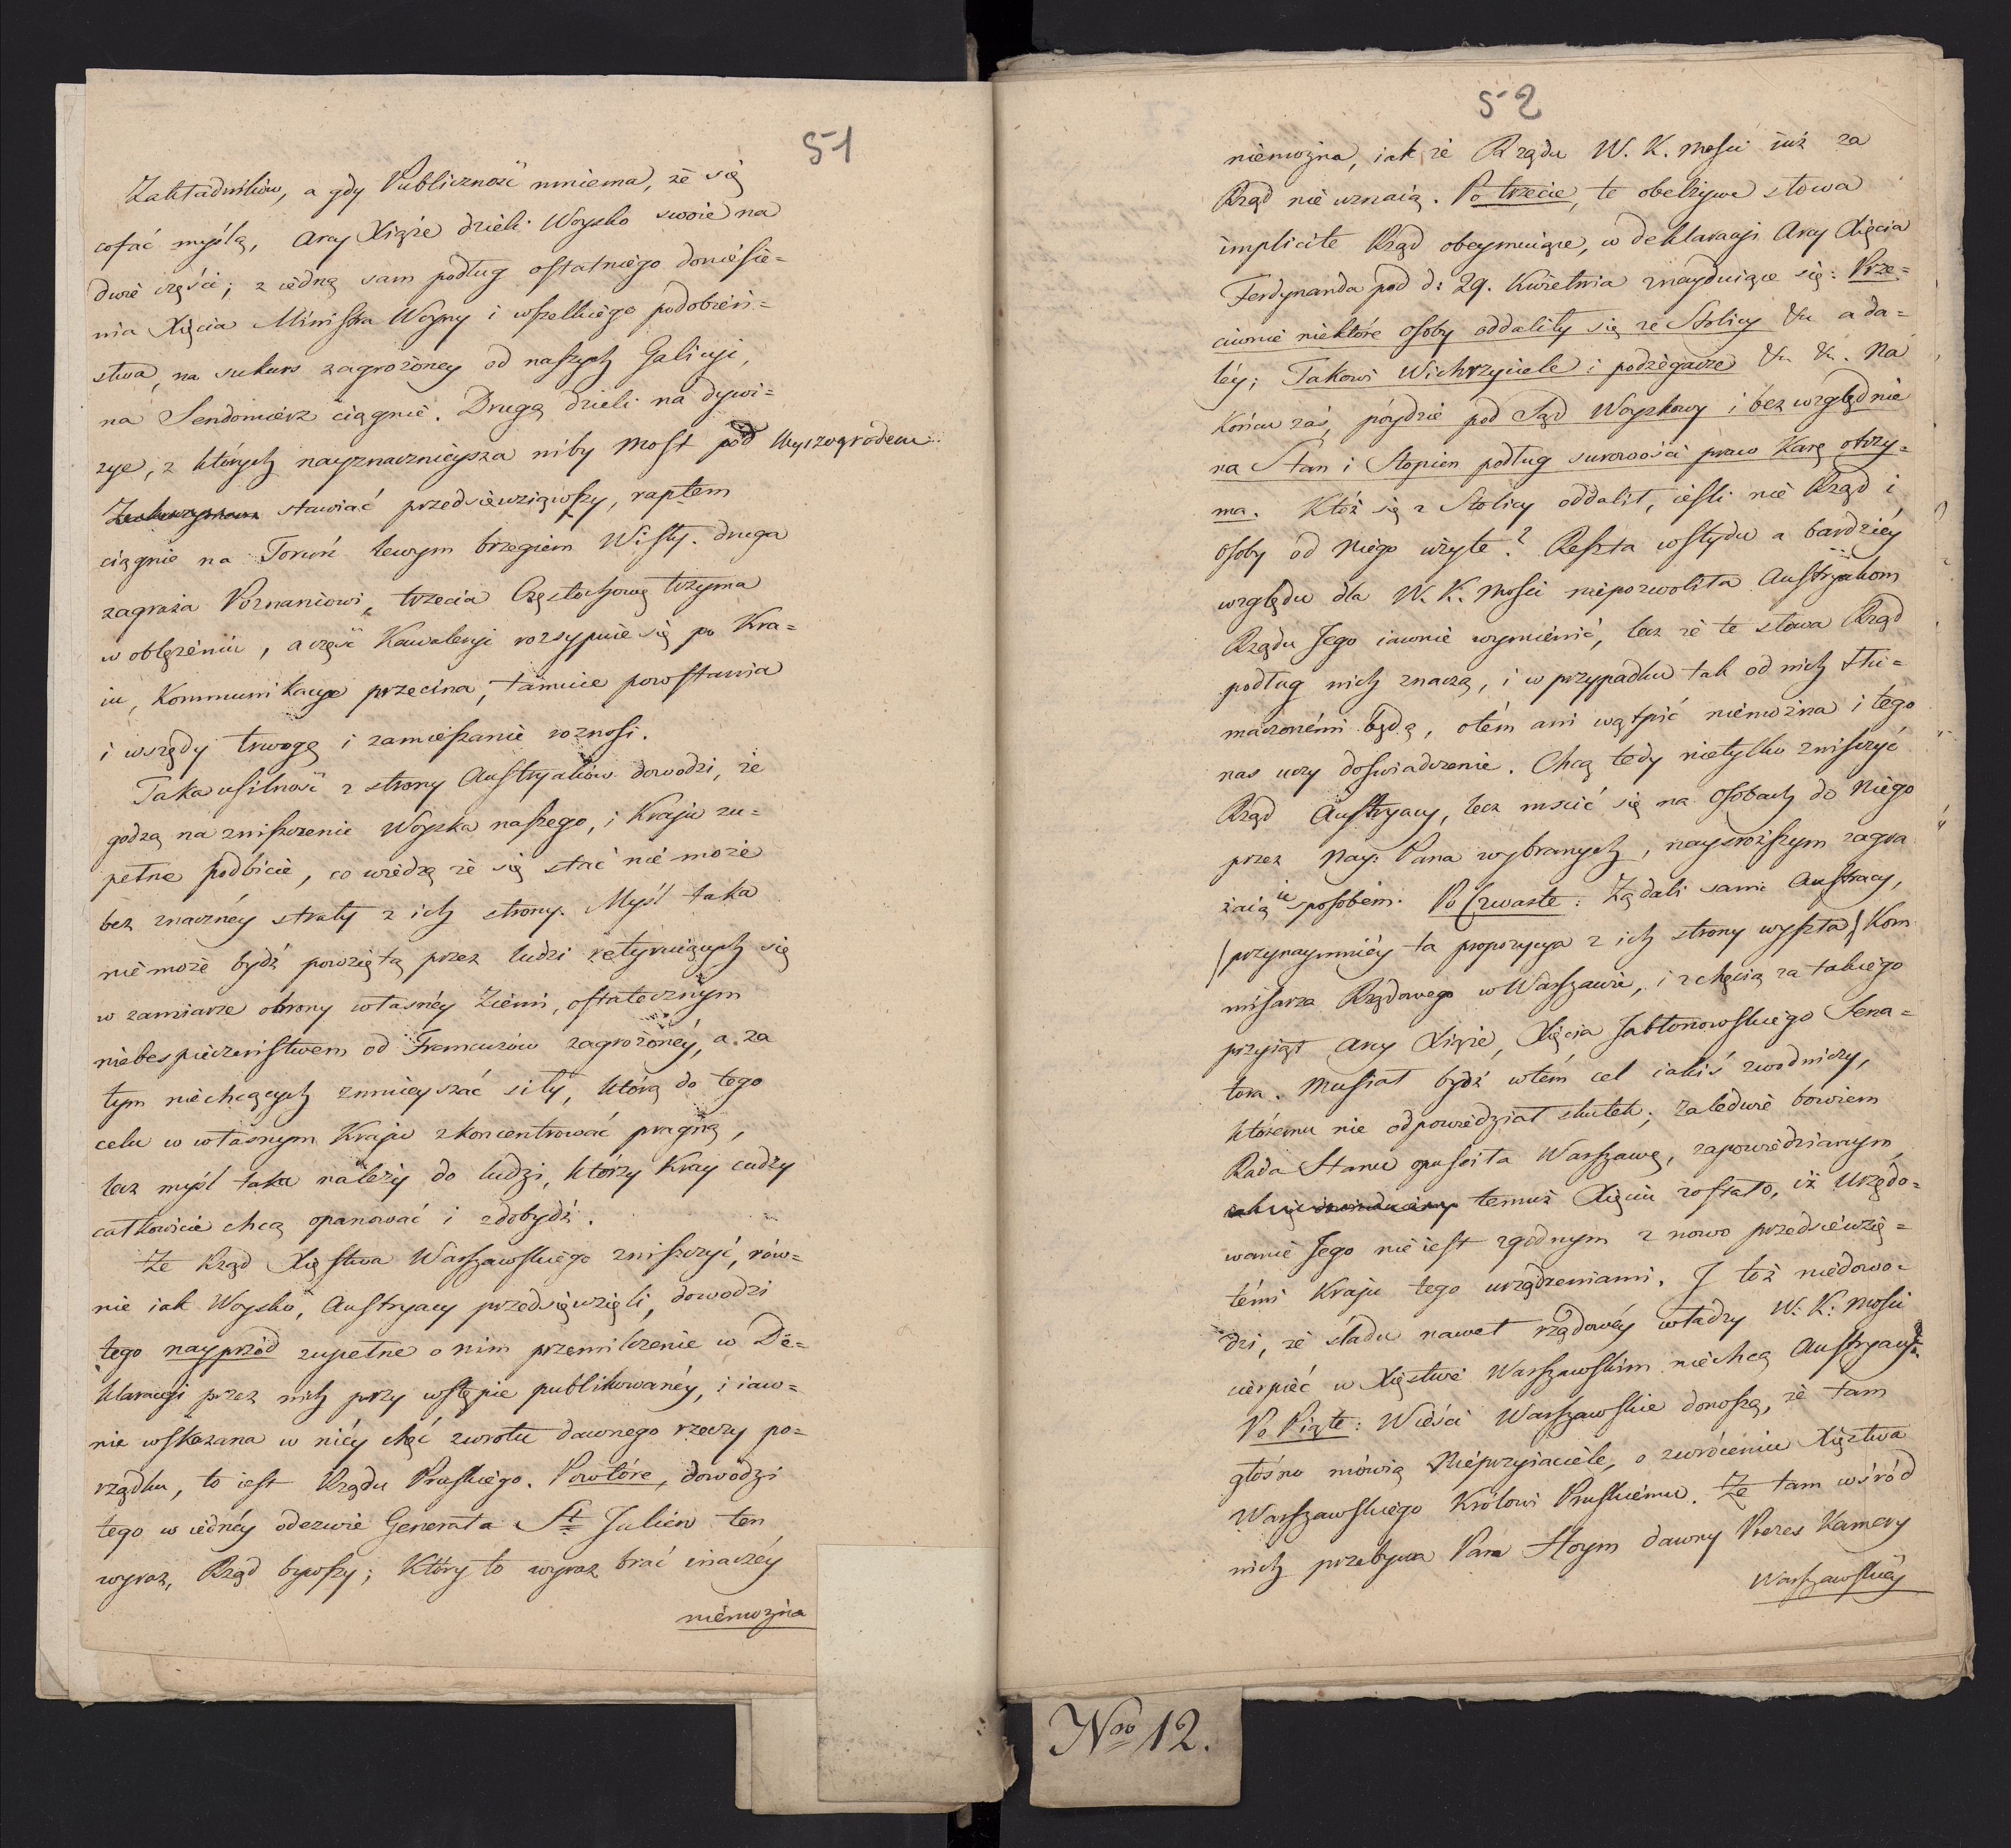 51
Zakładników, a gdy Publiczność mniema, że się
cofać myślą, Arcy Xiąże dzieli Woysko swoie na
dwie części; z iedną sam podług ostatniego doniesie=
nia Xięcia Ministra Woyny i wszelkiego podobień=
stwa, na sukurs zagrożoney od naszych Galicyi,
na Sendomierz ciągnie. Drugą dzieli na dywi=
zye, z których nayznacznieysza niby Most pod Wyszogrodem
stawiać przedsięwziąwszy, raptem
ciągnie na Toruń lewym brzegiem Wisły. druga
zagraża Poznaniowi, trzecia Częstochowę trzyma
w oblężeniu, a część Kawaleryi rozsypuie się po Kra=
iu, Kommunikacye przecina, tamuie powstania
i wszędy trwogę i zamieszanie roznosi.
Taka usilność z strony Austryaków dowodzi, że
godzą na zniszczenie Woyska naszego, i Kraju zu=
pełne podbicie, co wiedzą że się stać nie może
bez znacznéy straty z ich strony. Myśl taka
nie może bydź powziętą przez ludzi retyruiących się
w zamiarze obrony własnéy Ziemi, ostatecznym
niebespieczeństwem od Francuzów zagrożonéy, a za
tym niechcących zmnieyszać siły, którą do tego
celu w własnym Kraju zkoncentrować pragną,
lecz myśl taka należy do ludzi, którzy Kray cudzy
całkowicie chcą opanować i zdobydź.
Że Rząd Xięstwa Warszawskiego zniszczyć, rów=
nie iak Woysko, Austryacy przedsięwzięli, dowodzi
tego nayprzód zupełne o nim przemilczenie w De=
klaracyi przez nich przy wstępie publikowanéy, i iaw=
nie wskazana w niéy chęć zwrotu dawnego rzeczy po=
rządku, to iest Rządu Pruskiego. Powtóre, dowodzi
tego w iednéy odezwie Generała St Julien ten
wyraz, Rząd bywszy; Który to wyraz brać inaczéy
niemożna
52
niemożna, iak że Rządu W. K. Mości iuż za
Rząd nie uznaią. Po trzecie, te obelżywe słowa
implicite Rząd obeymuiące, w deklaracyi Arcy Xięcia
Ferdynanda pod d: 29. Kwietnia znayduiące się: Prze=
ciwnie niektóre osoby oddaliły się ze Stolicy &c a da=
léy; Takowi Wichrzyciele i podżegacze &c &c. Na
Końcu zaś, póydzie pod Sąd Woyskowy i bez względnie
na Stan i Stopien podług surowości praw Karę otrzy=
ma. Któż się z Stolicy oddalił, iesli nie Rząd i
osoby od Niego użyte? Reszta wstydu a bardziéy
względu dla W. K. Mości niepozwoliła Austryakom
Rządu Jego iawnie wymienić, lecz że te słowa Rząd
podług nich znaczą, i w przypadku tak od nich tłu=
maczonémi będą, otém ani wątpić niemożna i tego
nas uczy doświadczenie. Chcą tedy nietylko zniszczyć
Rząd Austryacy, lecz mścić się na Osobach do Niego
przez Nay: Pana wybranych, naysroższym zagra
żaią im sposobem. Po Czwarte: Żądali sami Austryacy,
/przynaymniéy ta propozycya z ich strony wyszła/ Kom
misarza Rządowego w Warszawie, i z chęcią za takiego
przyiął Arcy Xiąże, Xięcia Jabłonowskiego Sena=
tora. Musiał bydź wtém cel iakiś zwodniczy,
któremu nie odpowiedział skutek; zaledwie bowiem
Rada Stanu opuściła Warszawę, zapowiedzianym
temuż Xięciu zostało, iż Urzędo=
wanie Jego nie iest zgodnym z nowo przedsięwzię=
témi Kraju tego urządzeniami. I toż niedowo=
dzi, że śladu nawet rządowéy władzy W: K: Mości
cierpieć w Xięstwie Warszawskim niechcą Austryacy.
Po Piąte: Wieści Warszawskie donoszą, że tam
głośno mówią Nieprzyiaciele, o zwróceniu Xięztwa
Warszawskiego Królowi Pruskiemu. Że tam wśród
nich przebywa Pan Hoym dawny Prezes Kamery
Warszawskiéy
Nro 12.